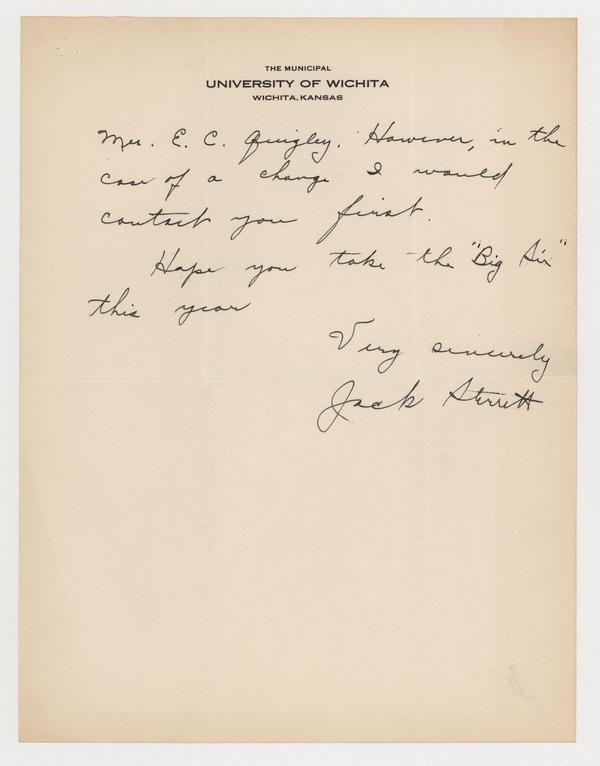 THE MUNICIPAL
UNIVERSITY OF WICHITA
WICHITA, KANSAS
Mr. E. C. Quigley. However, in the
case of a change I would
contact you first.
Hope you take the "Big Six"
this year
Very sincerely
Jack Sterrett